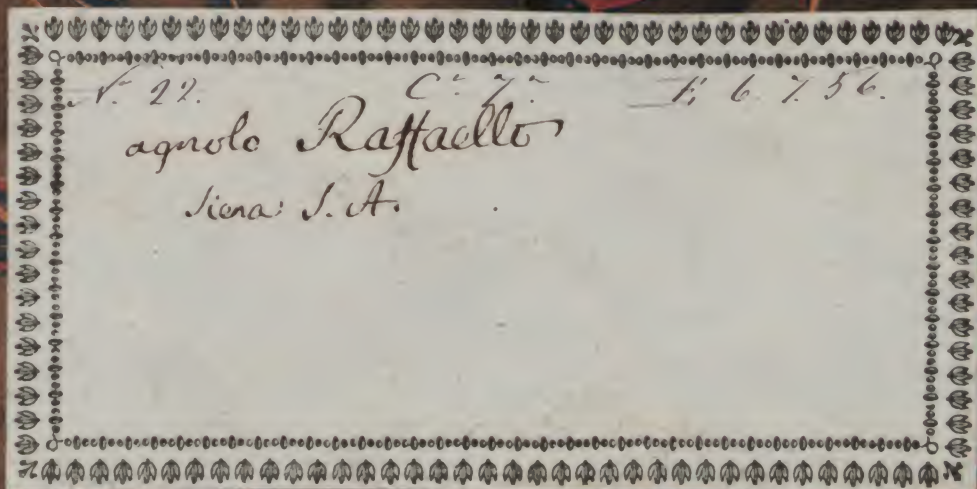 N. 22. C.ª 7.ª F. 6. 7. 56.
agnolo Raffaello
Siena: S. A.